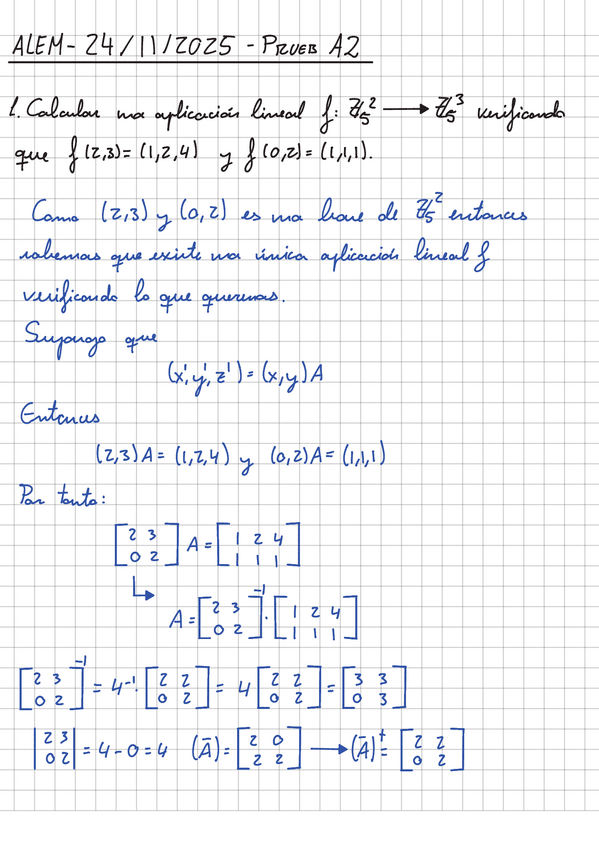 ALEM - 24/11/2025 - PRUEB A2
1. Calcular una aplicación lineal f: ℤ₅² → ℤ₅³ verificando
que f(2,3)=(1,2,4) y f(0,2)=(1,1,1).
Como (2,3) y (0,2) es una base de ℤ₅² entonces
sabemos que existe una única aplicación lineal f
verificando lo que queremos.
Supongo que
(x',y',z') = (x,y)A
Entonces
(2,3)A = (1,2,4) y (0,2)A = (1,1,1)
Por tanto:
[2 3; 0 2] A = [1 2 4; 1 1 1]
↳ A = [2 3; 0 2]⁻¹ · [1 2 4; 1 1 1]
[2 3; 0 2]⁻¹ = 4⁻¹ · [2 2; 0 2] = 4 [2 2; 0 2] = [3 3; 0 3]
|2 3; 0 2| = 4 - 0 = 4 (Ā) = [2 0; 2 2] → (Ā)ᵗ = [2 2; 0 2]